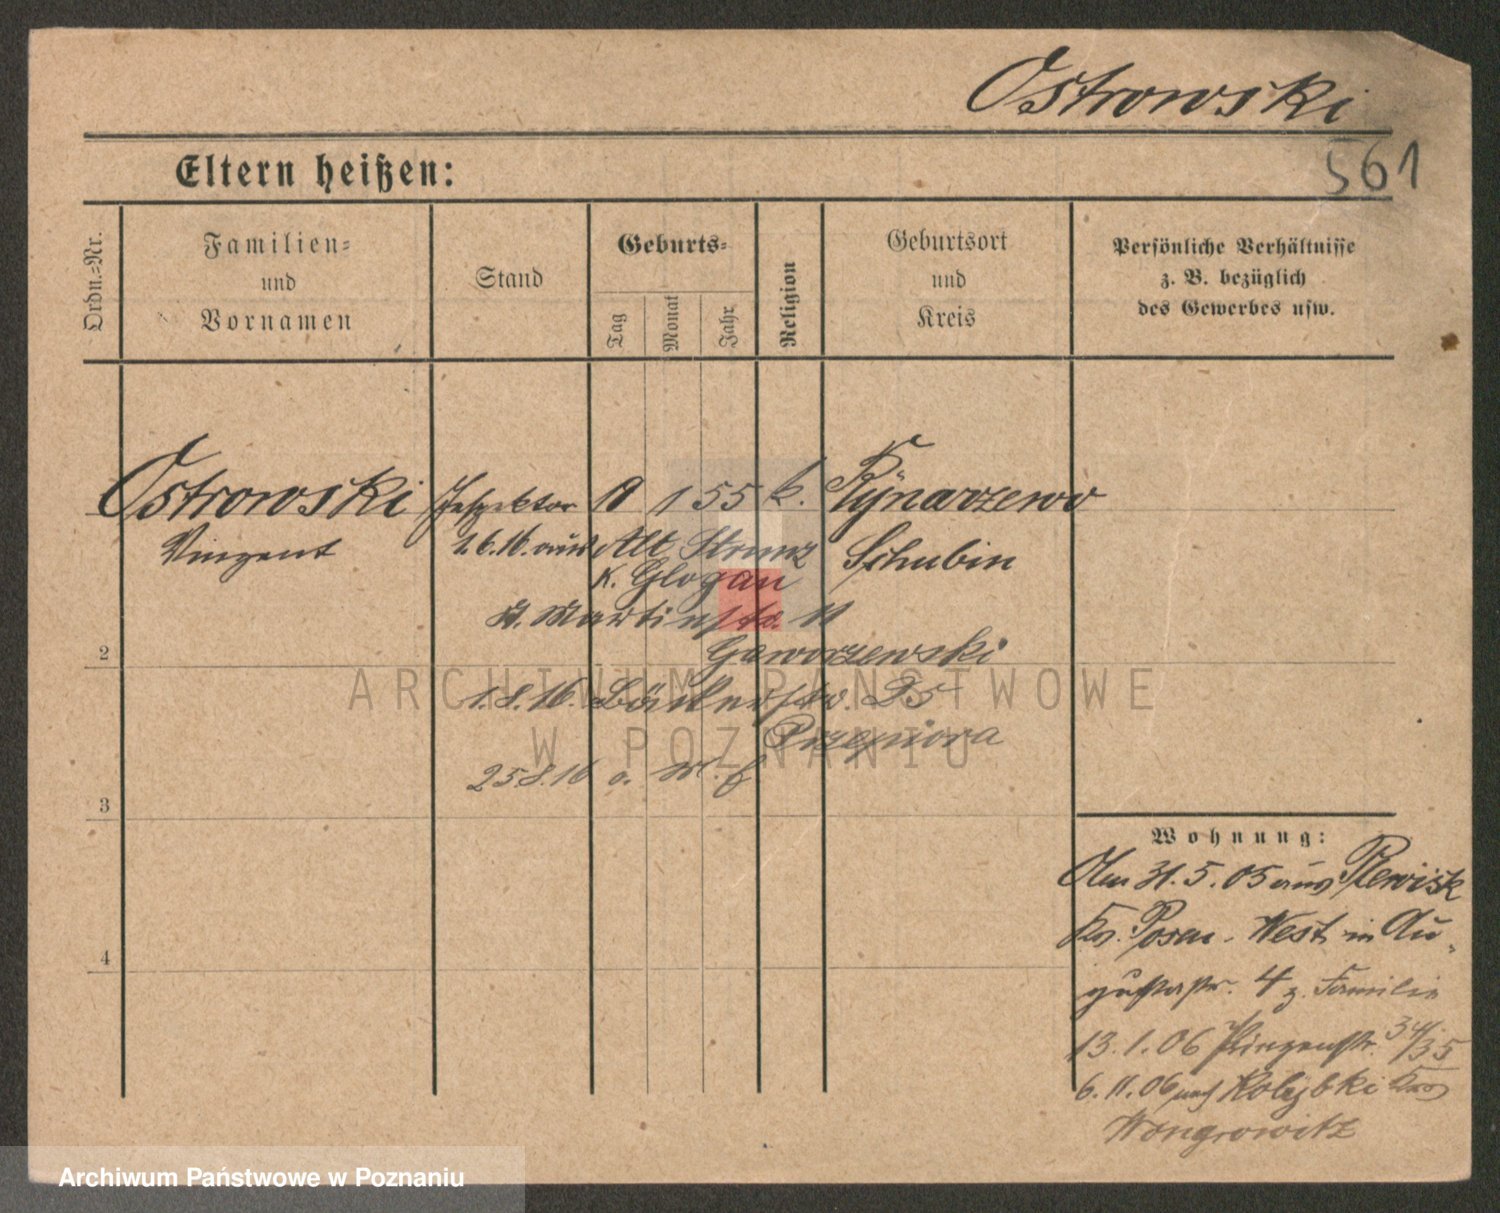 Ostrowski
561
Eltern heißen:
Ordn.=Nr.
Familien=
und
Vornamen
Stand
Geburts=
Tag
Monat
Jahr
Religion
Geburtsort
und
Kreis
Persönliche Verhältnisse
z. B. bezüglich
des Gewerbes usw.
Ostrowski Inspektor 1 55 k. Rynarzewo
Vinzent
1.6.16. aus Alt Strunz Schubin
K. Glogau
St. Martinstr. 11
Gaworzewski
2
1.8.16. Bäckerstr. 25
Przepiora
25.8.16 o. W. f
3
4
Wohnung:
Am 31.5.05 aus Plewisk
Kr. Posen-West in Au-
gustastr. 4 z. Familie
13.1.06 Prinzenstr. 34/35
6.11.06 nach Kolybki Kreis
Wongrowitz
ARCHIWUM PAŃSTWOWE
W POZNANIU
Archiwum Państwowe w Poznaniu